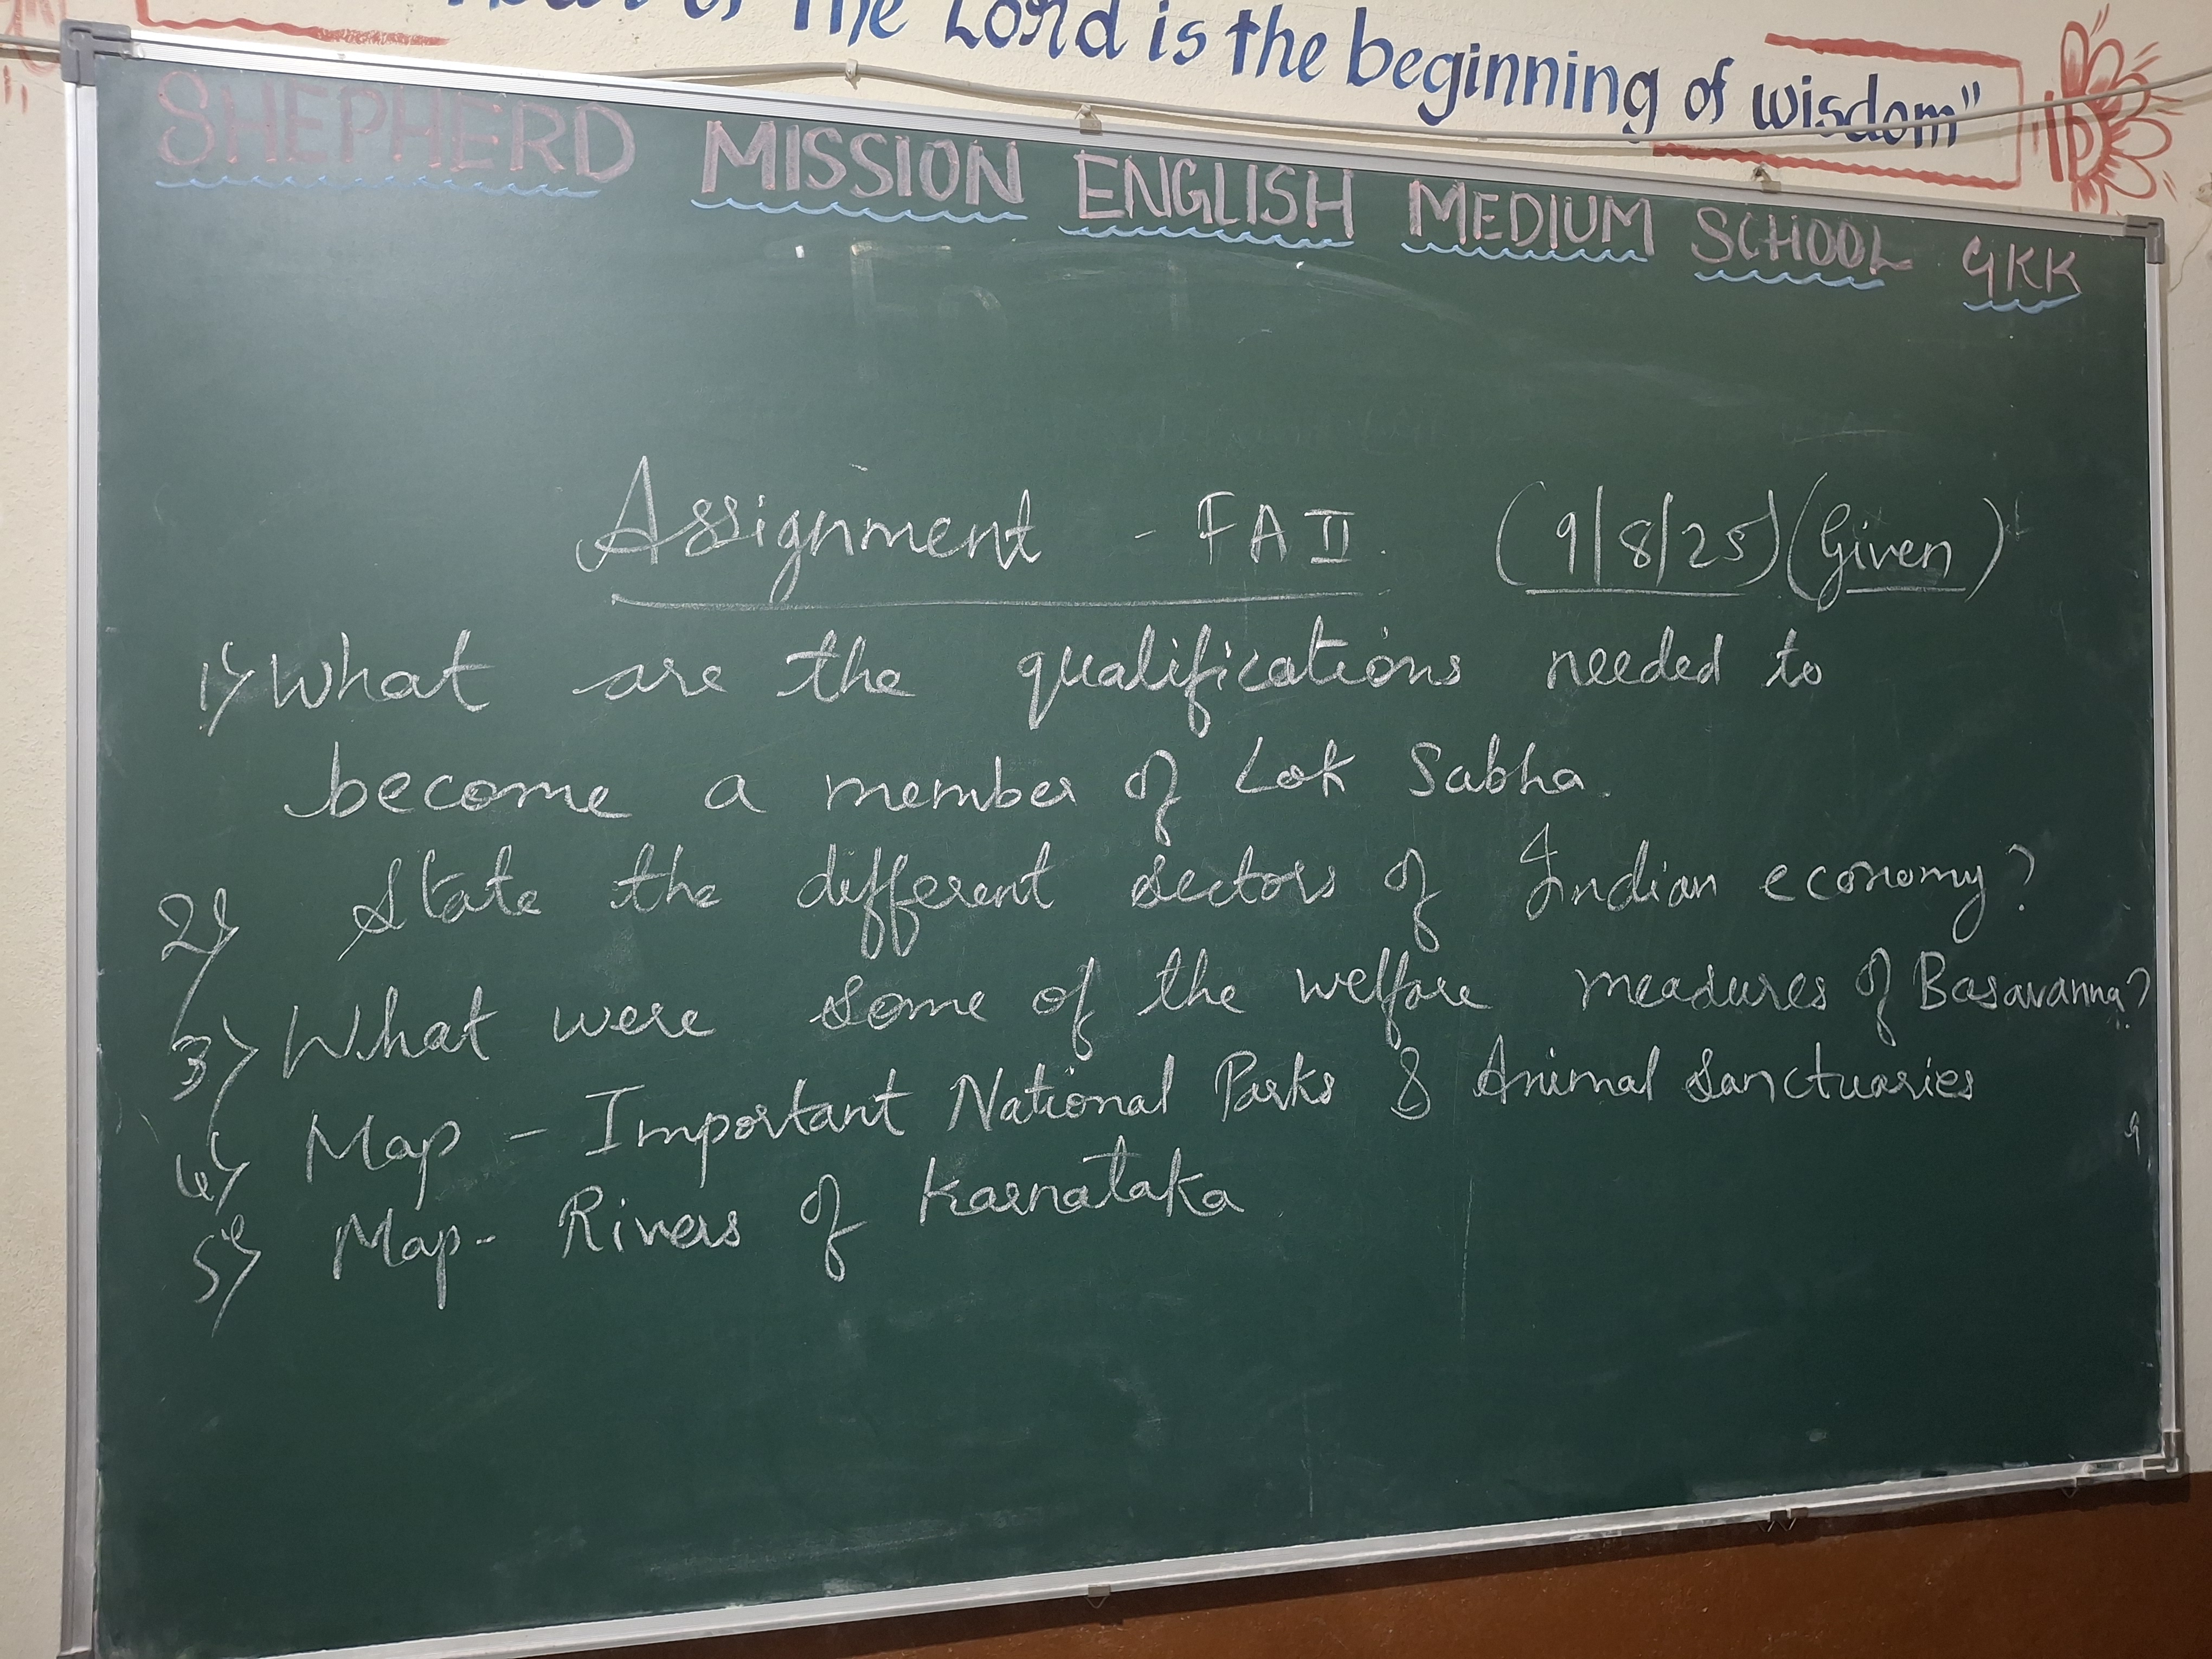 The Lord is the beginning of wisdom"
SHEPHERD MISSION ENGLISH MEDIUM SCHOOL GKK
Assignment - FA II. (9/8/25) (Given)
1) What are the qualifications needed to
become a member of Lok Sabha.
2) State the different sectors of Indian economy?
3) What were some of the welfare measures of Basavanna?
4) Map - Important National Parks & Animal Sanctuaries
5) Map - Rivers of Karnataka